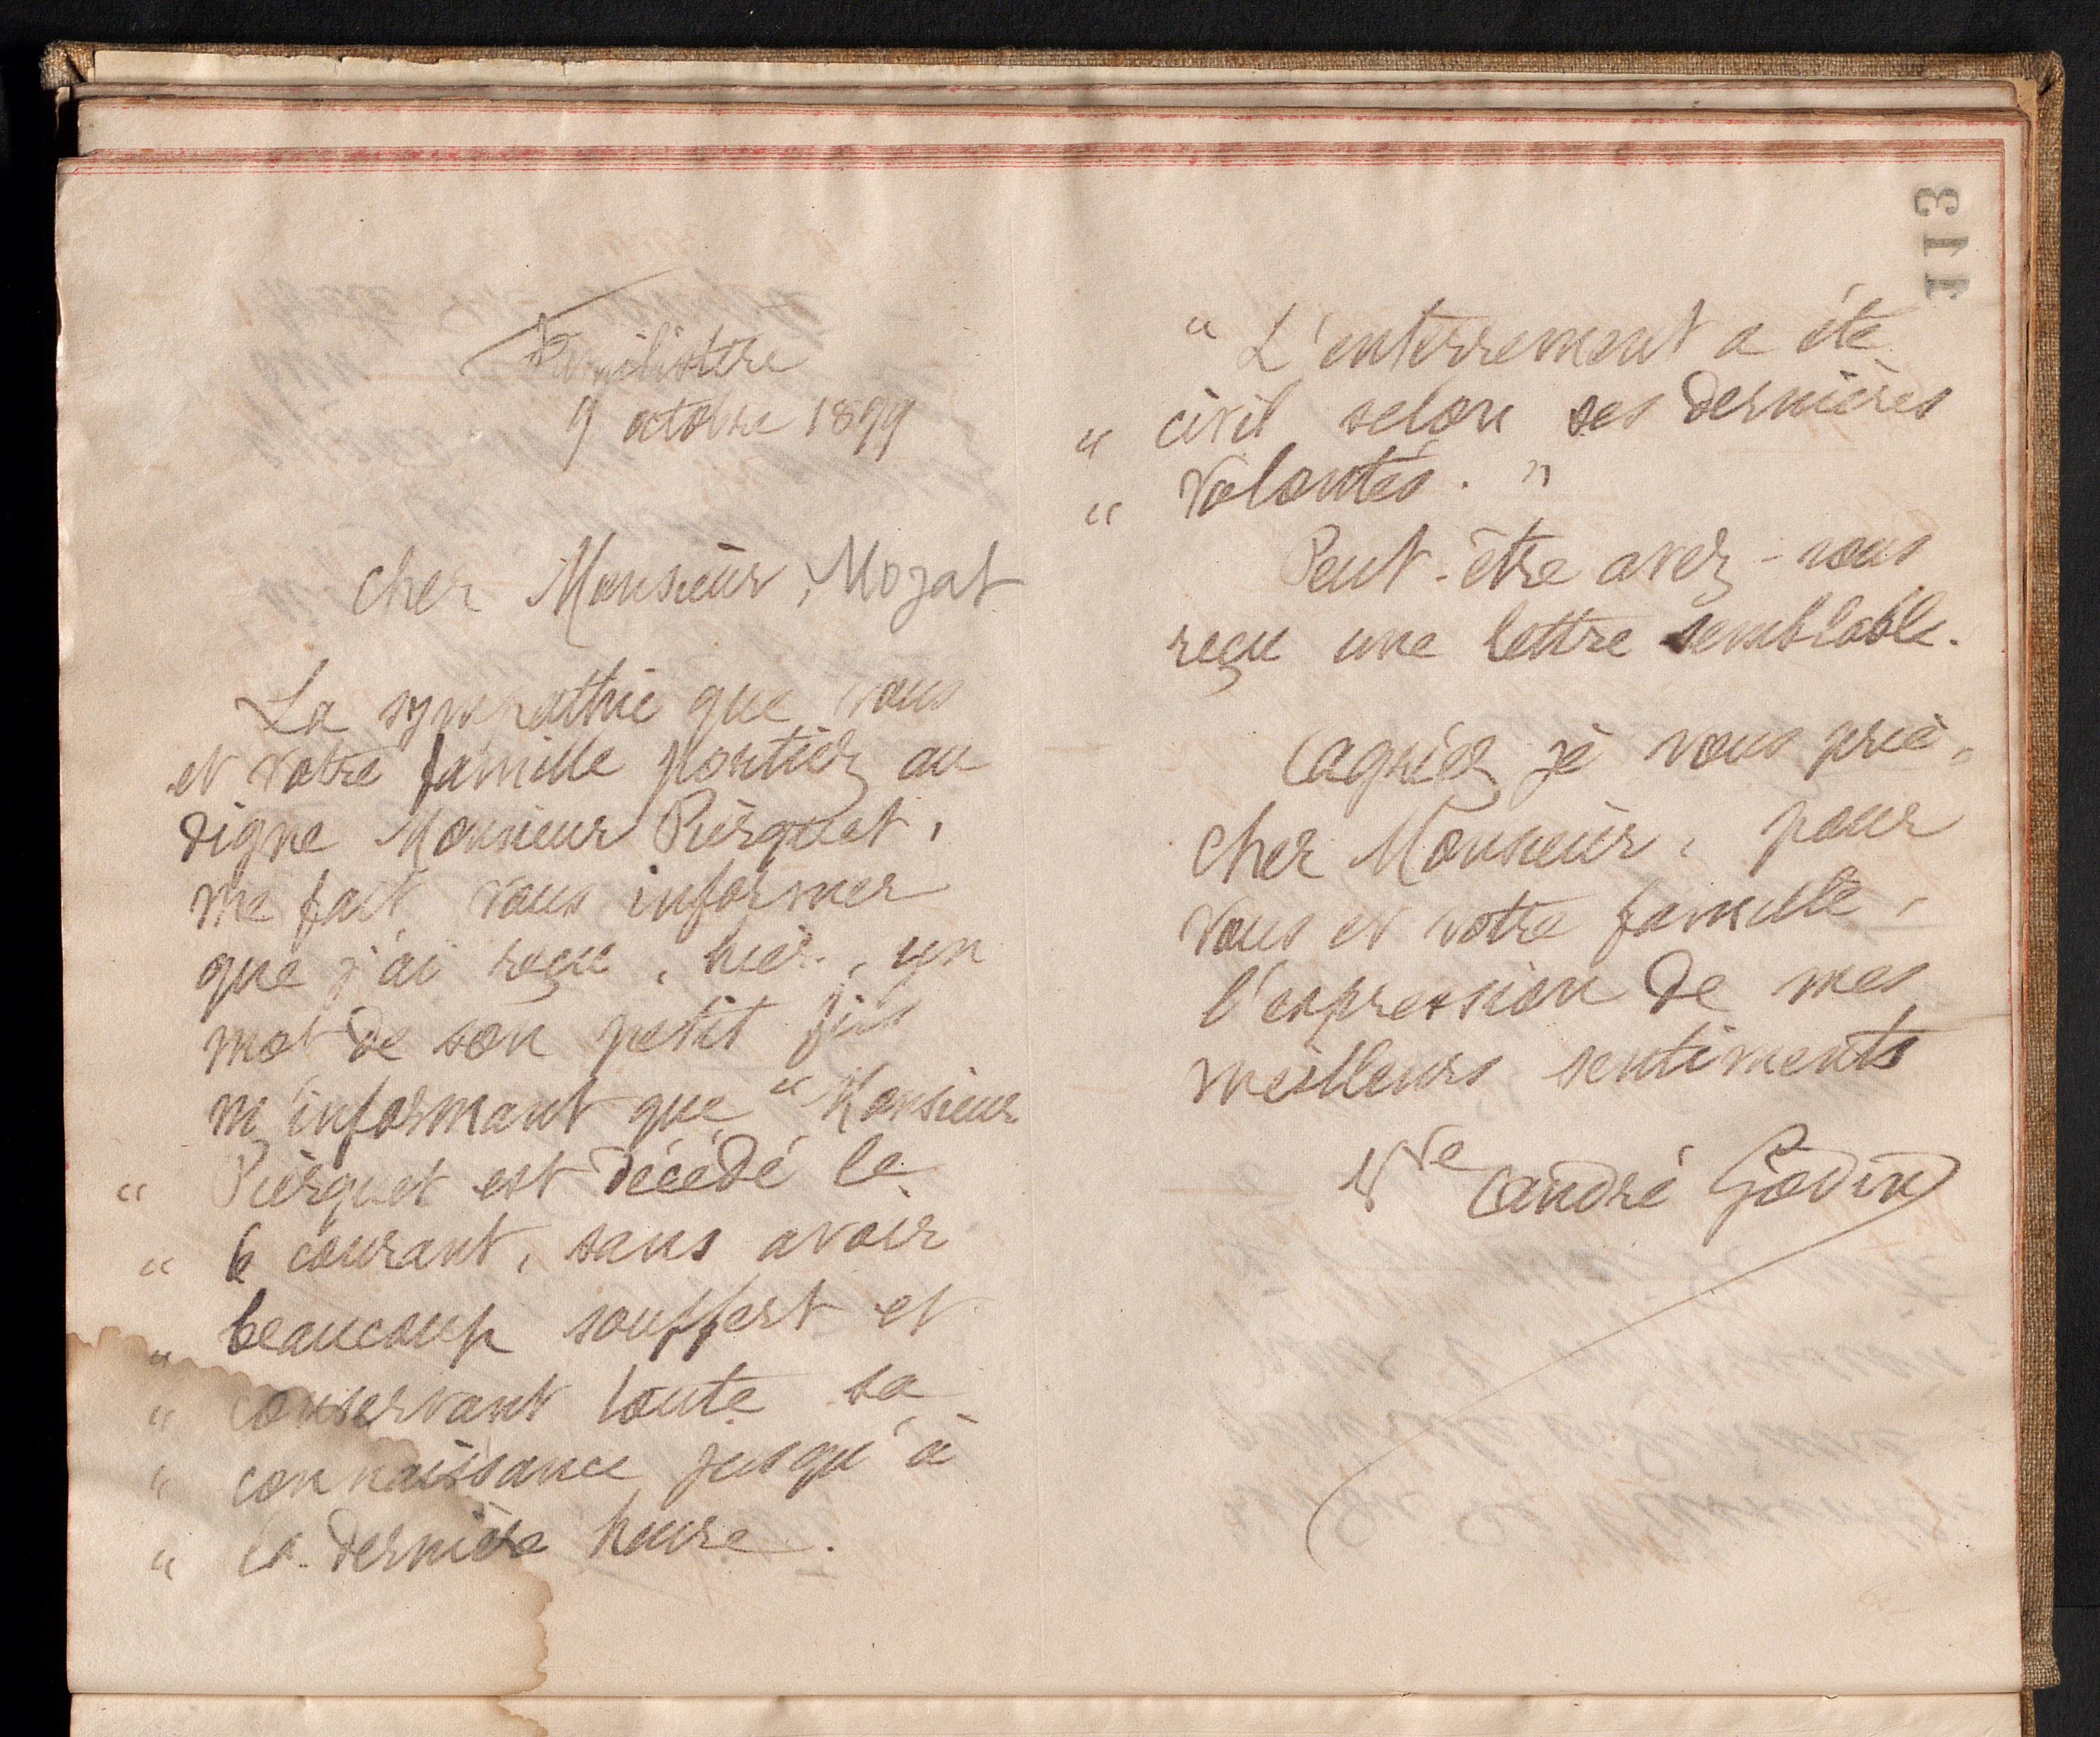 113
Familistère
9 octobre 1899
Cher Monsieur, Mozat
La sympathie que vous
et votre famille portiez au
digne Monsieur Pierquet,
me fait vous informer
que j'ai reçu, hier, un
mot de son petit fils
m'informant que "Monsieur
" Pierquet est décédé le
" 6 courant, sans avoir
" beaucoup souffert et
" conservant toute sa
" connaissance jusqu'à
" la dernière heure.
" L'enterrement a été
" civil selon ses dernières
" volontés. "
Peut-être avez-vous
reçu une lettre semblable.
Agréez je vous prie,
cher Monsieur, pour
vous et votre famille,
l'expression de mes
meilleurs sentiments
Vve André Godin